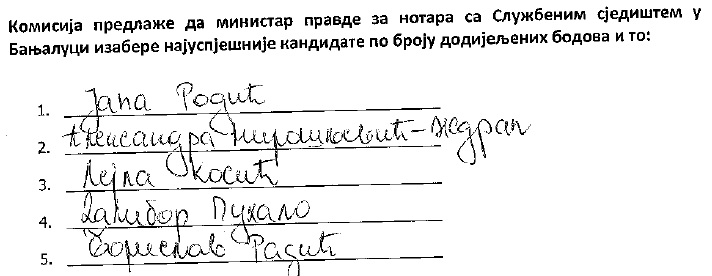 Комисија предлаже да министар правде за нотара са Службеним сједиштем у
Бањалуци изабере најуспјешније кандидате по броју додијељених бодова и то:
1. Јана Родић
2. Александра
3. Лејла Косић
4. Далибор Пухало
5. Борислав Радић